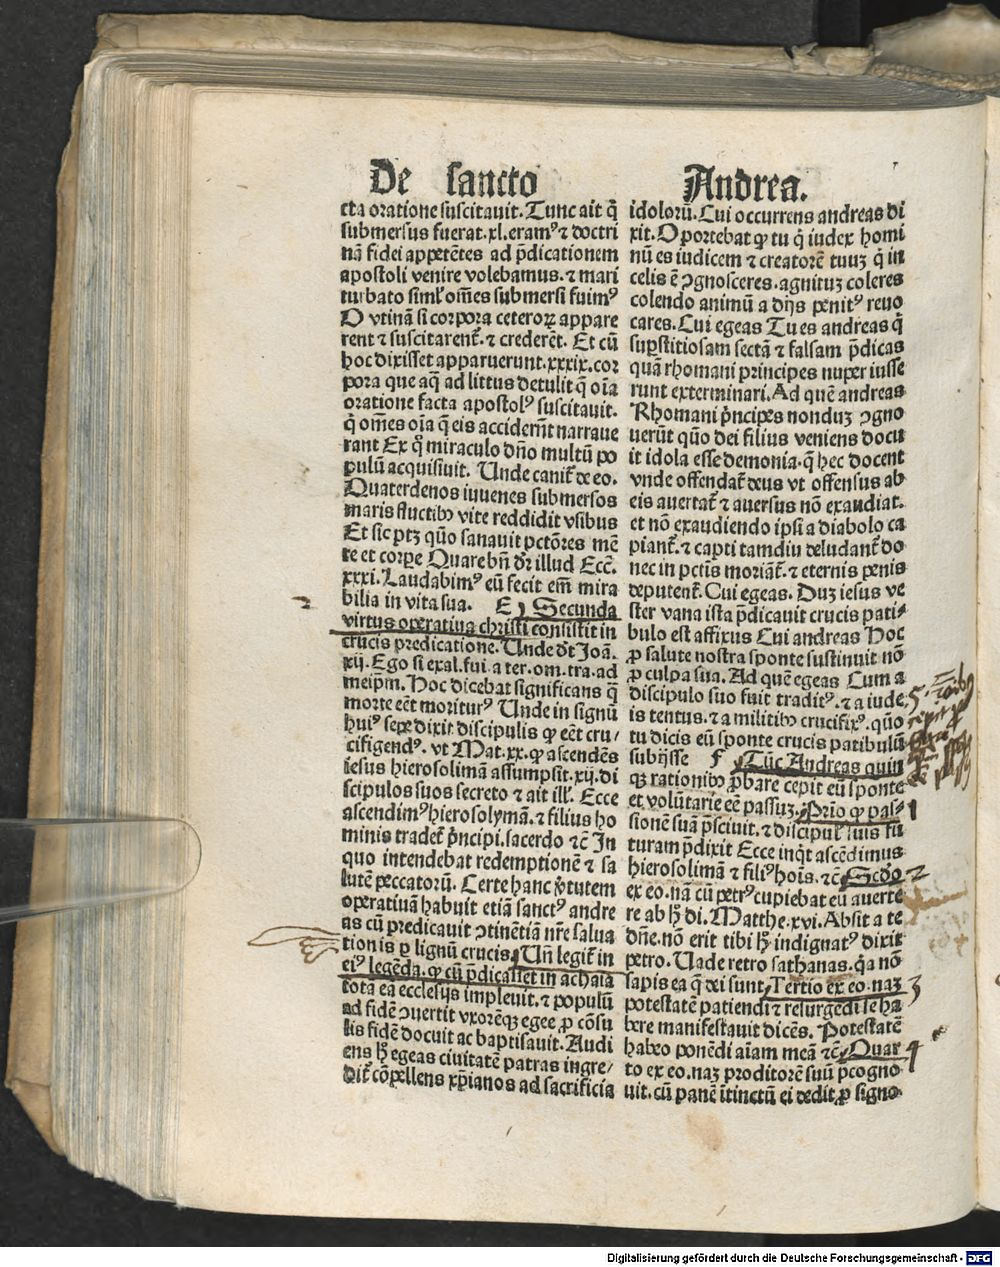 De sancto
Andrea.
cta oratione suscitauit. Tunc ait q̄
submersus fuerat. xl. eramꝰ ⁊ doctri
nā fidei appetētes ad p̄dicationem
apostoli venire volebamus. ⁊ mari
turbato siml̓ om̄es submersi fuimꝰ
O vtinā si corpora ceteroꝝ appare
rent ⁊ suscitarent᷑. ⁊ crederēt. Et cū
hoc dixisset apparuerunt. xxxix. cor
pora que aq̄ ad littus detulit q̄ oīa
oratione facta apostolꝰ suscitauit.
q̄ om̄es oīa q̄ eis acciderūt narraue
rant Ex q̊ miraculo dn̄o multū po
pulū acquisiuit. Unde canit᷑ de eo.
Quaterdenos iuuenes submersos
maris fluctibꝫ vite reddidit vsibus
Et sic ptꝫ quō sanauit pctōres mē
te et corpe Quare bn̄ dr̄ illud Ecc̄.
xxxi. Laudabimꝰ eū fecit em̄ mira
bilia in vita sua. E Secunda
virtus operatiua christi consistit in
crucis predicatione. Unde dr̄ Joā.
xij. Ego si exal. fui a ter. om. tra. ad
meipm̄. Hoc dicebat significans q̄
morte eēt moriturꝰ Unde in signū
huiꝰ sepe dixit discipulis ꝙ eēt cru/
cifigendꝰ. vt Mat. xx. ꝙ ascendēs
iesus hierosolimā assumpsit. xij. di
scipulos suos secreto ⁊ ait ill̓. Ecce
ascendimꝰ hierosolymā. ⁊ filius ho
minis tradet᷑ p̄ncipi. sacerdo ⁊c̄ In
quo intendebat redemptionē ⁊ sa
lutē peccatorū. Certe hanc v̓tutem
operatiuā habuit etiā sanctꝰ andre
as cū predicauit ꝯtinētiā nr̄e salua
tionis ꝑ lignū crucis. Un̄ legit᷑ in
eiꝰ legēda. ꝙ cū p̄dicasset in achaia
tota ea ecclesijs impleuit. ⁊ populū
ad fidē ꝯuertit vxorēqꝫ egee ꝓ cōsu
lis fidē docuit ac baptisauit. Audi
ens hꝫ egeas ciuitatē patras ingre/
dit᷑ cōpellens xp̄ianos ad sacrificia
idolorū. Cui occurrens andreas di
xit. Oportebat ꝙ tu q̄ iudex homi
nū es iudicem ⁊ creatorē tuuꝫ q̄ in
celis ē ꝯgnosceres. agnituꝫ coleres
colendo animū a dijs penitꝰ reuo
cares. Cui egeas Tu es andreas q̄
suꝑstitiosam sectā ⁊ falsam p̄dicas
quā rhomani principes nuper iusse
runt exterminari. Ad quē andreas
Rhomani p̄ncipes nonduꝫ ꝯgno
uerūt quō dei filius veniens docu
it idola esse demonia. q̄ hec docent
vnde offendat᷑ deus vt offensus ab
eis auertat᷑ ⁊ auersus nō exaudiat.
et nō exaudiendo ipsi a diabolo ca
piant᷑. ⁊ capti tamdiu deludant᷑ do
nec in pctis moriāt᷑. ⁊ eternis penis
deputent᷑. Cui egeas. Duꝫ iesus ve
ster vana ista p̄dicauit crucis pati/
bulo est affixus Cui andreas Hoc
ꝓ salute nostra sponte sustinuit nō
ꝓ culpa sua. Ad quē egeas Cum a
discipulo suo fuit traditꝰ. ⁊ a iude
is tentus. ⁊ a militibꝫ crucifixꝰ. quō
tu dicis eū sponte crucis patibulū
subijsse F Tūc Andreas quin
qꝫ rationibꝫ ꝓbare cepit eū sponte
et volūtarie eē passuꝫ. Prīo ꝙ pas/
sionē suā p̄sciuit. ⁊ discipul̓ suis fu
turam p̄dixit Ecce inq̄t ascēdimus
hierosolimā ⁊ filiꝰ hoīs. ⁊c̄ Scd̓o
ex eo. nā cū petrꝰ cupiebat eū auerte
re ab hꝫ di. Matthe. xvi. Absit a te
dn̄e. nō erit tibi hꝫ indignatꝰ dixit
petro. Uade retro sathanas. q̄a nō
sapis ea q̄ dei sunt. Tertio ex eo. naꝫ
potestatē patiendi ⁊ resurgēdi se ha
bere manifestauit dicēs. Potestatē
habeo ponēdi aīam meā ⁊c̄ Quar
to ex eo. naꝫ proditorē suū p̄cogno
uit. cū panē ītinctū ei dedit. ꝓ signo
1
2
3
4
Digitalisierung gefördert durch die Deutsche Forschungsgemeinschaft - DFG